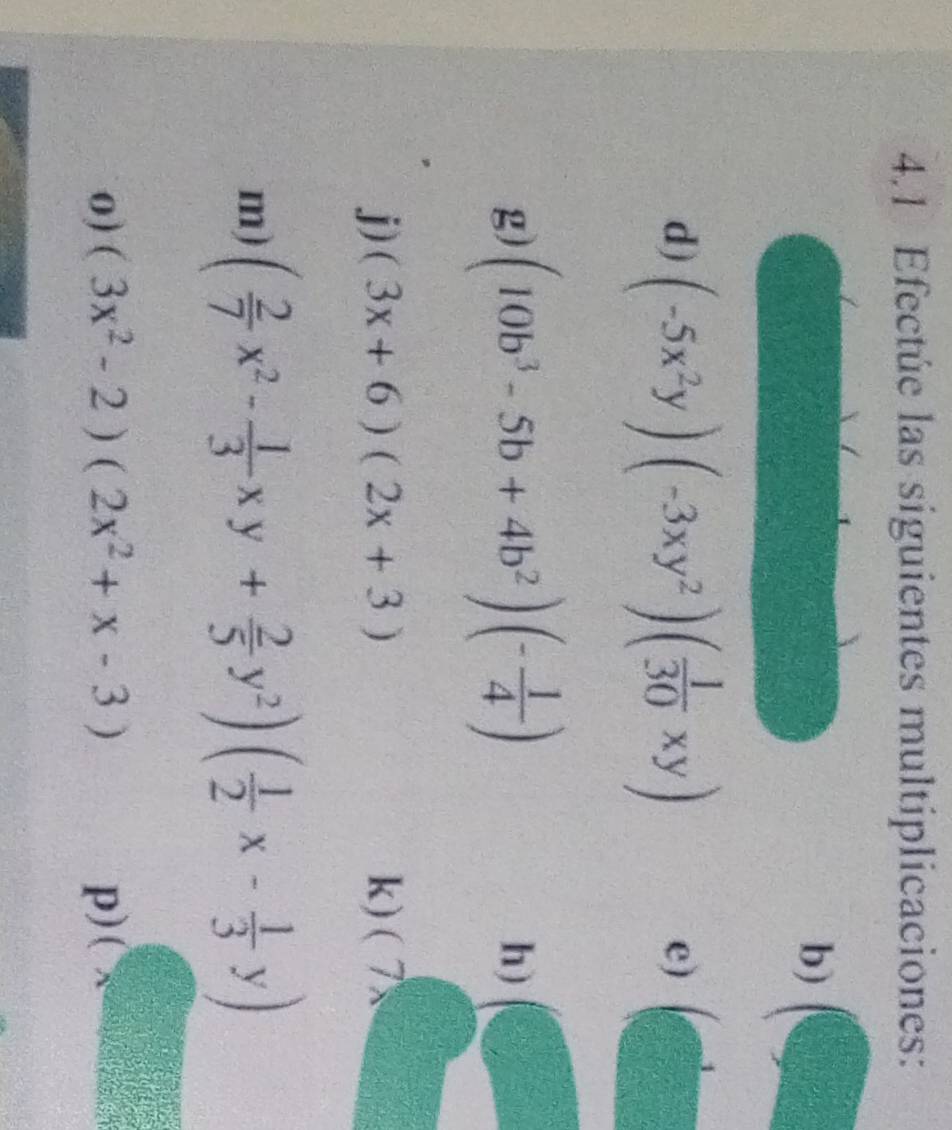 4.1 Efectúe las siguientes multiplicaciones:
b) (
d) (-5x²y)(-3xy²)(1/30 xy) e) (
g) (10b³ - 5b + 4b²)(-1/4) h) (
j) (3x + 6) (2x + 3) k) (7x
m) (2/7 x² - 1/3 xy + 2/5 y²)(1/2 x - 1/3 y)
o) (3x² - 2) (2x² + x - 3) p) (